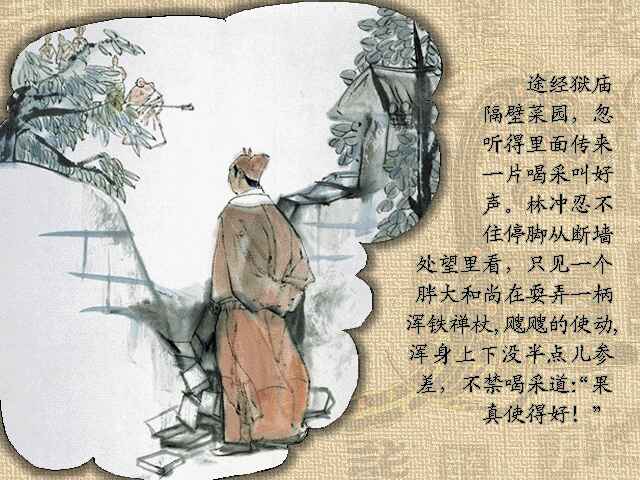 途经狱庙
隔壁菜园，忽
听得里面传来
一片喝采叫好
声。林冲忍不
住停脚从断墙
处望里看，只见一个
胖大和尚在耍弄一柄
浑铁禅杖，飕飕的使动，
浑身上下没半点儿参
差，不禁喝采道：“果
真使得好！”